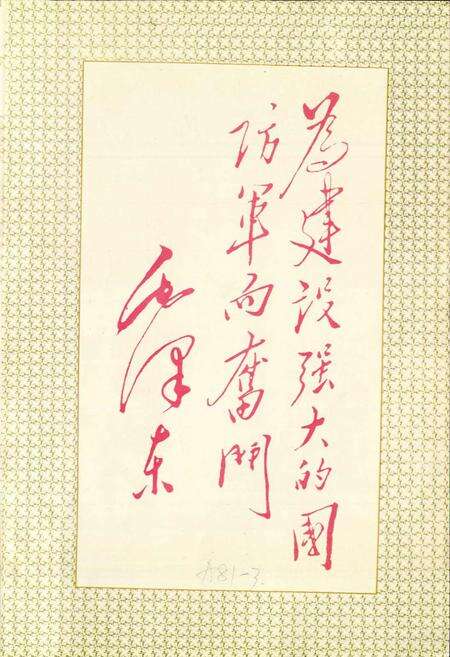 為建設强大的國
防軍而奮鬥
毛澤东
A81-3.